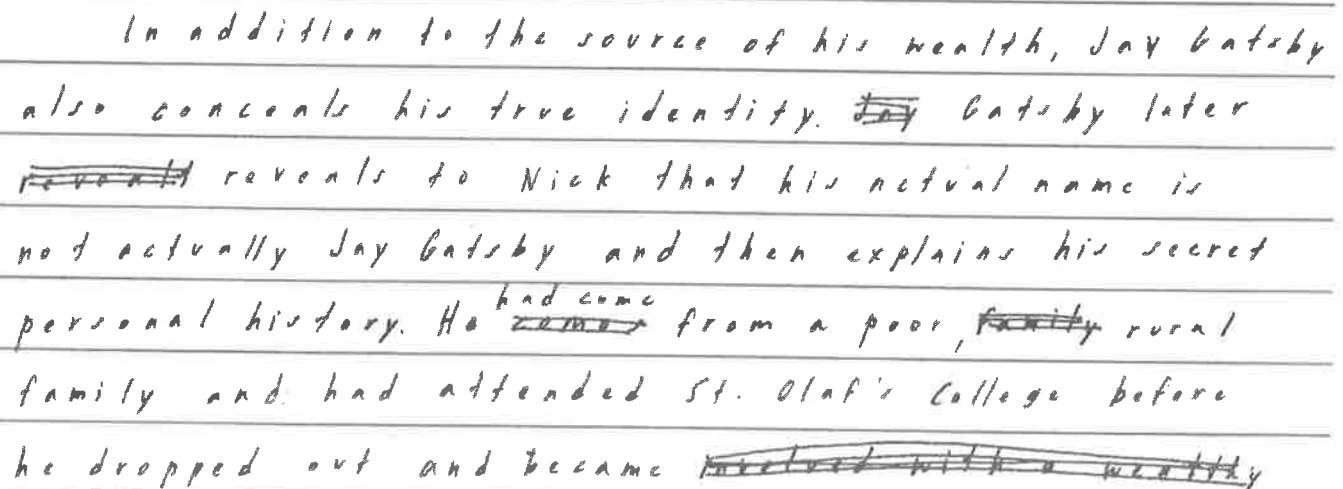 In addition to the source of his wealth, Jay Gatsby
also conceals his true identity. Jay Gatsby later
reveals reveals to Nick that his actual name is
not actually Jay Gatsby and then explains his secret
had come
personal history. He comes from a poor, family rural
family and had attended St. Olaf's College before
he dropped out and became involved with a wealthy